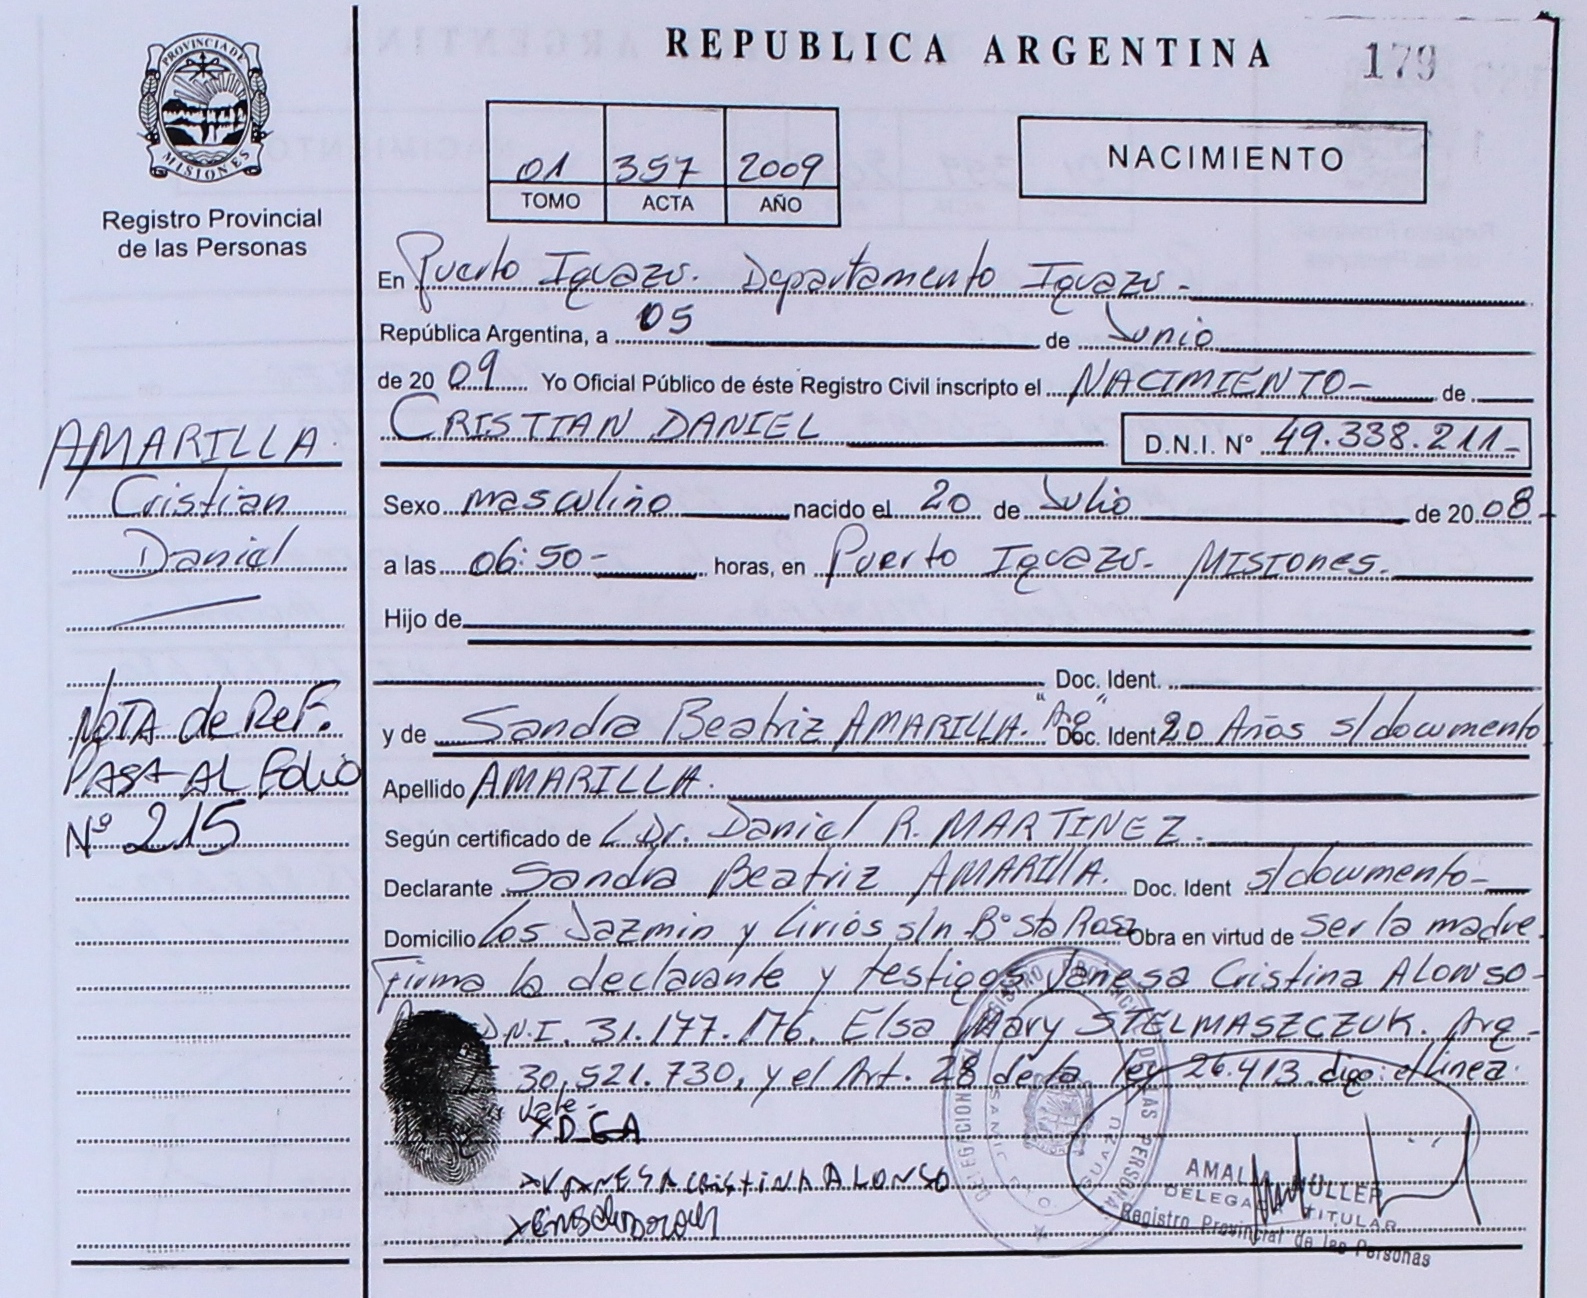 REPUBLICA ARGENTINA
179
PROVINCIA DE
MISIONES
Registro Provincial
de las Personas
01 357 2009
TOMO ACTA AÑO
NACIMIENTO
En Puerto Iguazu. Departamento Iguazu.-
República Argentina, a 05 de Junio
de 20 09 Yo Oficial Público de éste Registro Civil inscripto el NACIMIENTO- de
CRISTIAN DANIEL D.N.I. Nº 49.338.211-
AMARILLA
Cristian
Daniel
Sexo masculino nacido el 20 de Julio de 20 08
a las 06:50- horas, en Puerto Iguazu. MISIONES.
Hijo de
Doc. Ident.
y de Sandra Beatriz AMARILLA. "Arg" Doc. Ident 20 Años s/documento
NOTA de ReF.
PASA AL Folio
Nº 215
Apellido AMARILLA.
Según certificado de Dr. Daniel R. MARTINEZ.
Declarante Sandra Beatriz AMARILLA. Doc. Ident s/documento-
Domicilio Los Jazmin y Lirios s/n Bº Sta Rosa Obra en virtud de ser la madre.
Firma la declarante y testigos Vanesa Cristina ALONSO-
D.N.I. 31.177.176. Elsa Mary STELMASZCZUK. Arg-
30.521.730, y el Art. 28 de la ley 26.413. digo: el linea
Vale-
DGA
VANESA CRISTINA ALONSO
REGISTRO PROVINCIAL DE LAS PERSONAS
DELEGACION
IGUAZU
AMALIA MULLER
DELEGADA TITULAR
Registro Provincial de las Personas